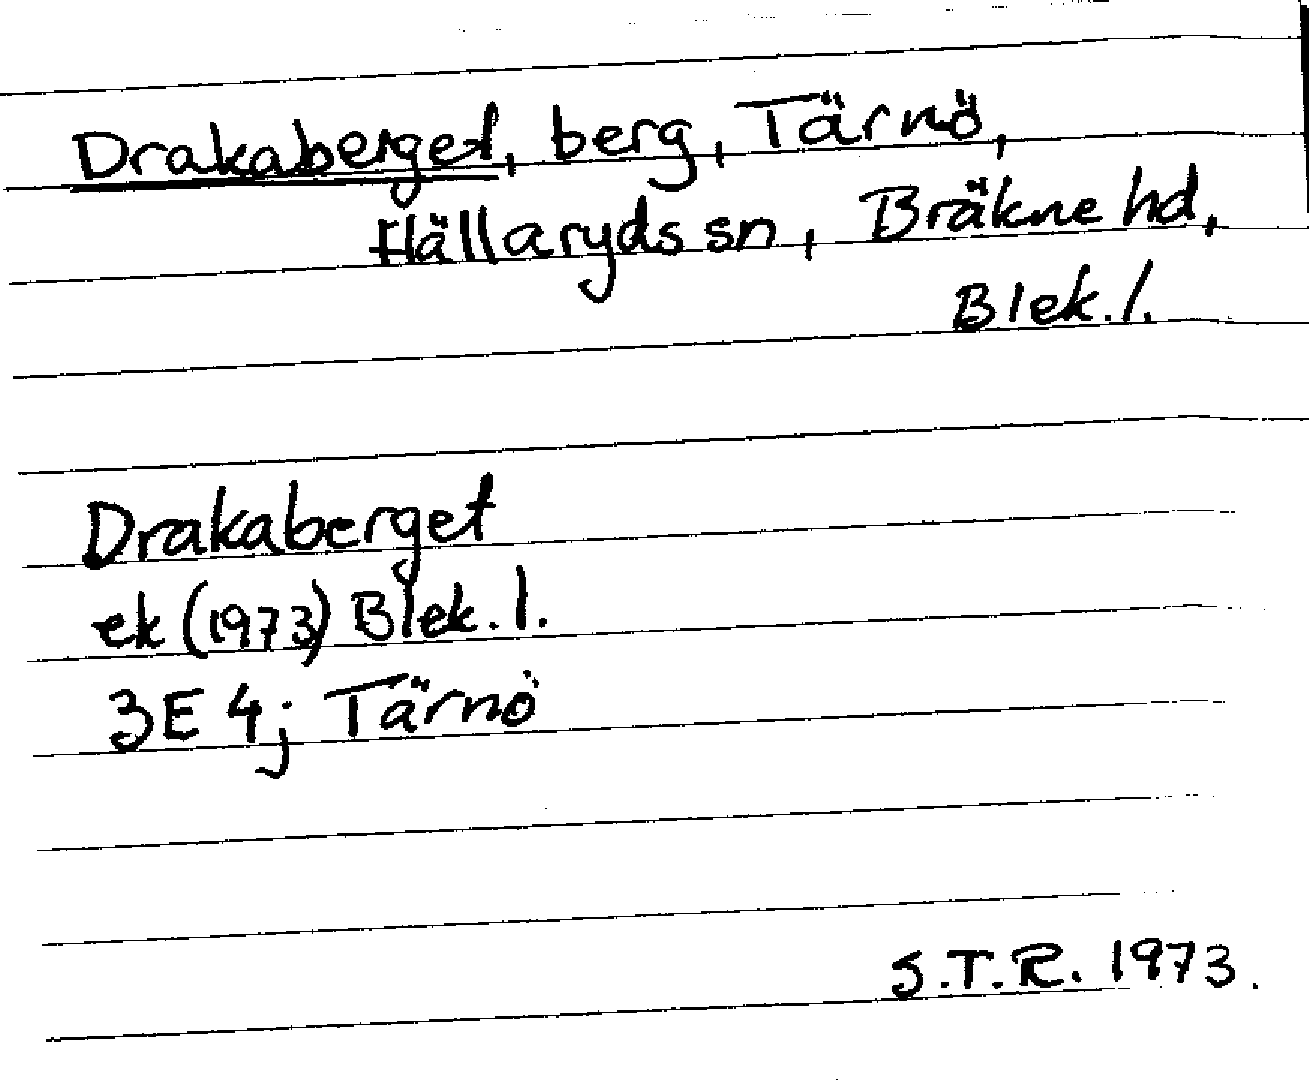 Drakaberget, berg, Tärnö,
Hällaryds sn, Bräkne hd,
Blek. l.
Drakaberget
ek (1973) Blek. l.
3E 4j Tärnö
S.T.R. 1973.